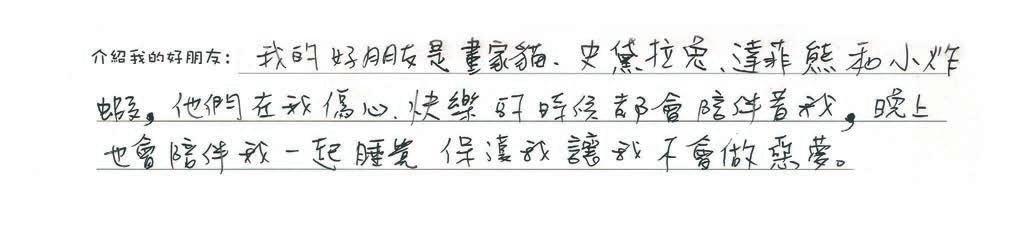 介紹我的好朋友：我的好朋友是畫家貓、史黛拉兔、達菲熊和小炸
蝦，他們在我傷心、快樂的時候都會陪伴著我，晚上
也會陪伴我一起睡覺 保護我讓我不會做惡夢。